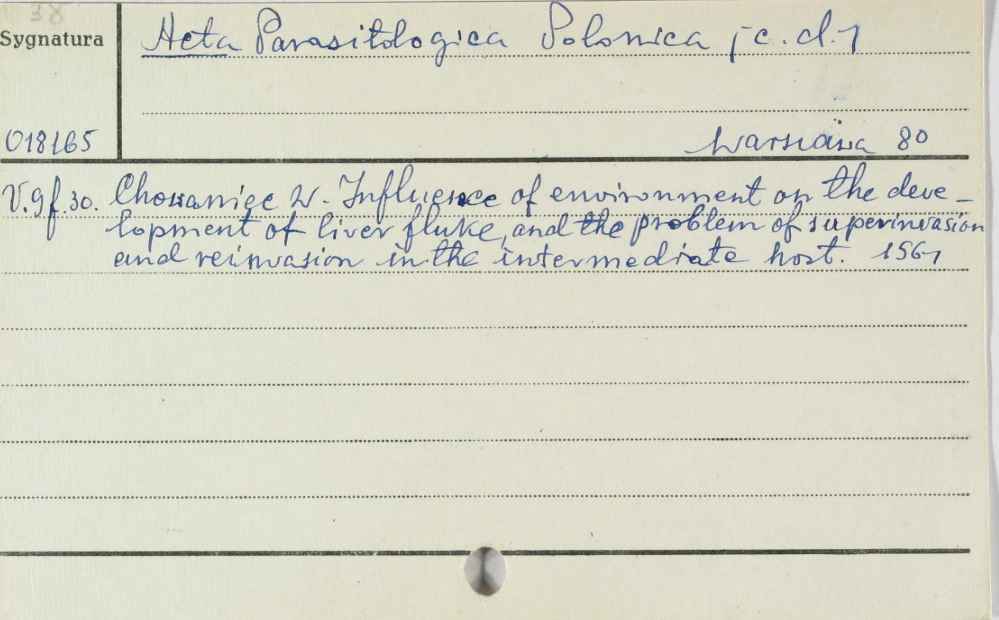 38
Sygnatura
Acta Parasitologica Polonica /c.d./
018165
Warszawa 80
V. 9 f. 30. Chowaniec W. Influence of environment on the deve-
lopment of liver fluke, and the problem of superinvasion
and reinvasion in the intermediate host. 1961